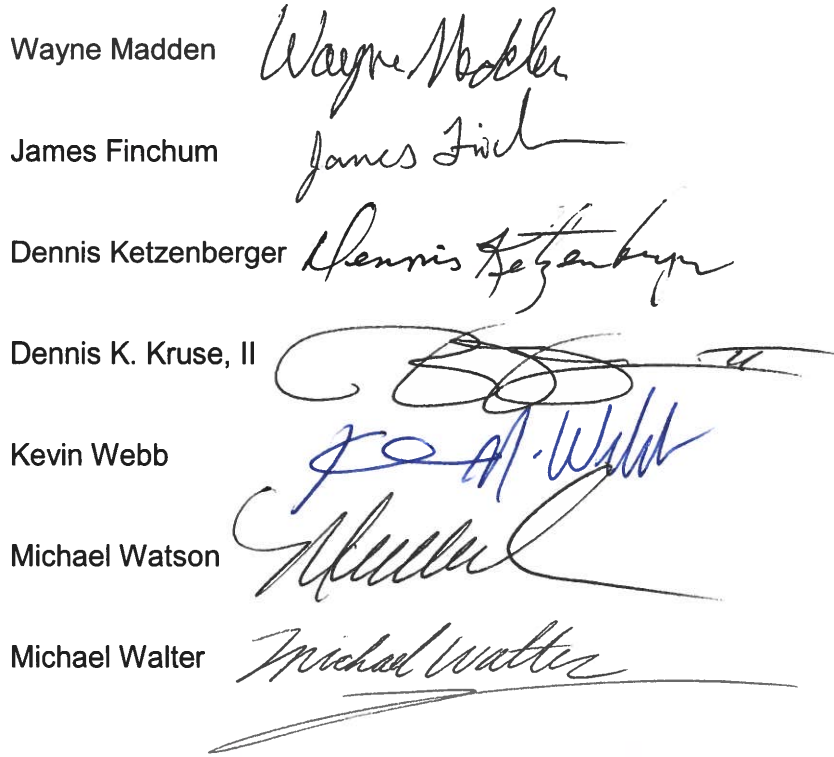 Wayne Madden Wayne Madden
James Finchum James Finch
Dennis Ketzenberger Dennis Ketzenberger
Dennis K. Kruse, II II
Kevin Webb K M. Webb
Michael Watson
Michael Walter Michael Walter